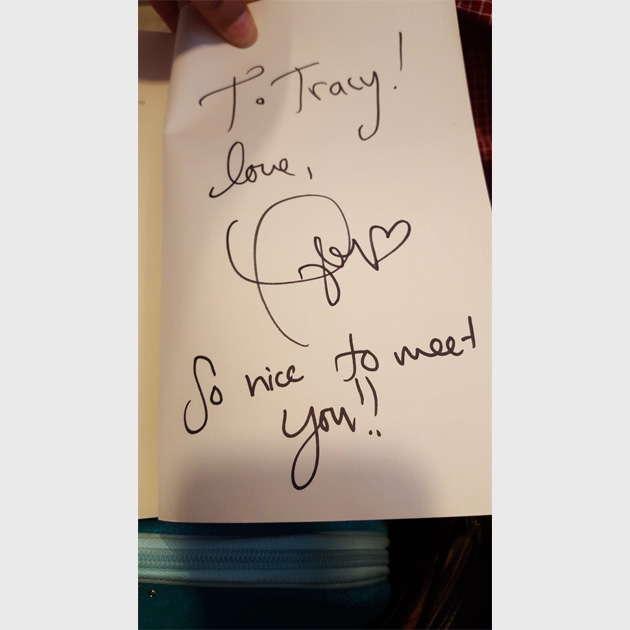 To. Tracy!
love,
So nice to meet
you!!